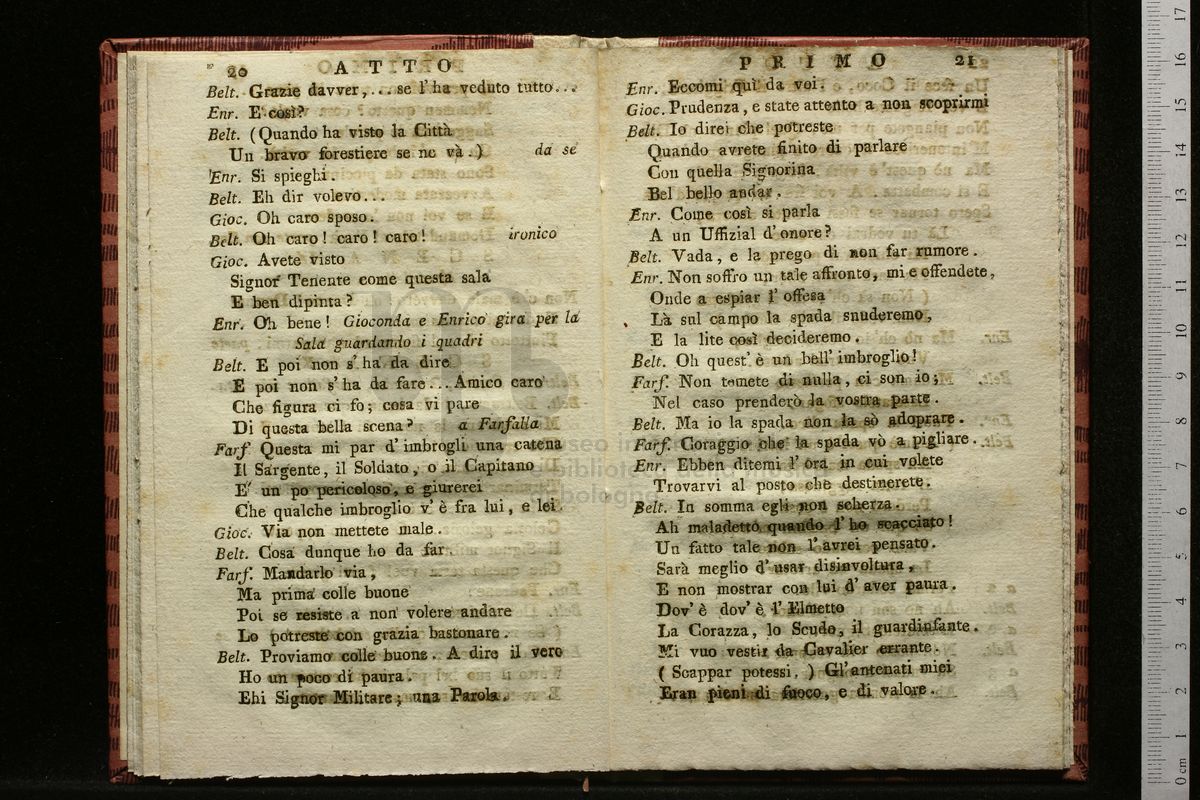 20 A T T O
Belt. Grazie davver, ... se l'ha veduto tutto...
Enr. E così?
Belt. (Quando ha visto la Città
Un bravo forestiere se ne và.) da se
Enr. Si spieghi.
Belt. Eh dir volevo...
Gioc. Oh caro sposo.
Belt. Oh caro! caro! caro! ironico
Gioc. Avete visto
Signor Tenente come questa sala
E ben dipinta?
Enr. Oh bene! Gioconda e Enrico gira per la
Sala guardando i quadri
Belt. E poi non s'ha da dire
E poi non s'ha da fare... Amico caro
Che figura ci fo; cosa vi pare
Di questa bella scena? a Farfalla
Farf. Questa mi par d'imbrogli una catena
Il Sargente, il Soldato, o il Capitano
E' un po pericoloso, e giurerei
Che qualche imbroglio v'è fra lui, e lei.
Gioc. Via non mettete male.
Belt. Cosa dunque ho da far
Farf. Mandarlo via,
Ma prima colle buone
Poi se resiste a non volere andare
Lo potreste con grazia bastonare.
Belt. Proviamo colle buone. A dire il vero
Ho un poco di paura.
Ehi Signor Militare; una Parola.
P R I M O 21
Enr. Eccomi quì da voi.
Gioc. Prudenza, e state attento a non scoprirmi
Belt. Io direi che potreste
Quando avrete finito di parlare
Con quella Signorina
Bel bello andar.
Enr. Come così si parla
A un Uffizial d'onore?
Belt. Vada, e la prego di non far rumore.
Enr. Non soffro un tale affronto, mi e offendete,
Onde a espiar l'offesa
Là sul campo la spada snuderemo,
E la lite così decideremo.
Belt. Oh quest'è un bell'imbroglio!
Farf. Non temete di nulla, ci son io;
Nel caso prenderò la vostra parte.
Belt. Ma io la spada non la sò adoprare.
Farf. Coraggio che la spada vò a pigliare.
Enr. Ebben ditemi l'ora in cui volete
Trovarvi al posto che destinerete.
Belt. In somma egli non scherza.
Ah maladetto quando l'ho scacciato!
Un fatto tale non l'avrei pensato.
Sarà meglio d'usar disinvoltura,
E non mostrar con lui d'aver paura.
Dov'è dov'è l'Elmetto
La Corazza, lo Scudo, il guardinfante.
Mi vuo vestir da Cavalier errante.
(Scappar potessi.) Gl'antenati miei
Eran pieni di fuoco, e di valore.